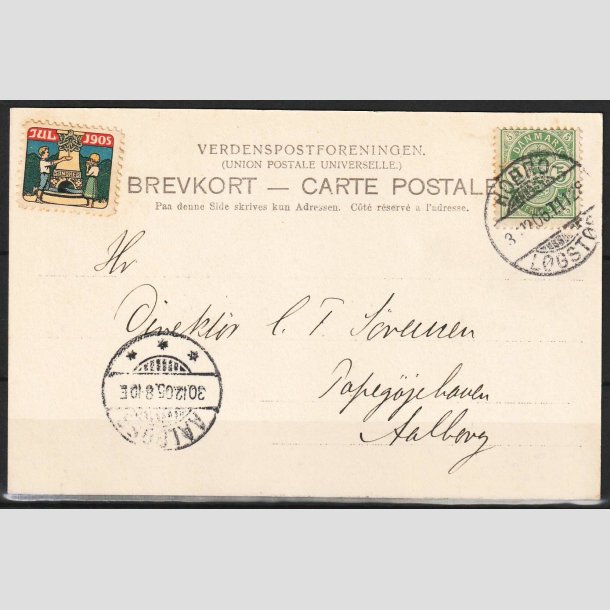 JUL 1905
VERDENSPOSTFORENINGEN.
(UNION POSTALE UNIVERSELLE.)
BREVKORT — CARTE POSTALE
Paa denne Side skrives kun Adressen. Côté réservé a l'adresse.
DANMARK
HOBRO
LØGSTØR
Hr
Direktör C. T. Sørensen
Papegøjehaven
Aalborg
30.12.05. 8-10 E
AALBORG